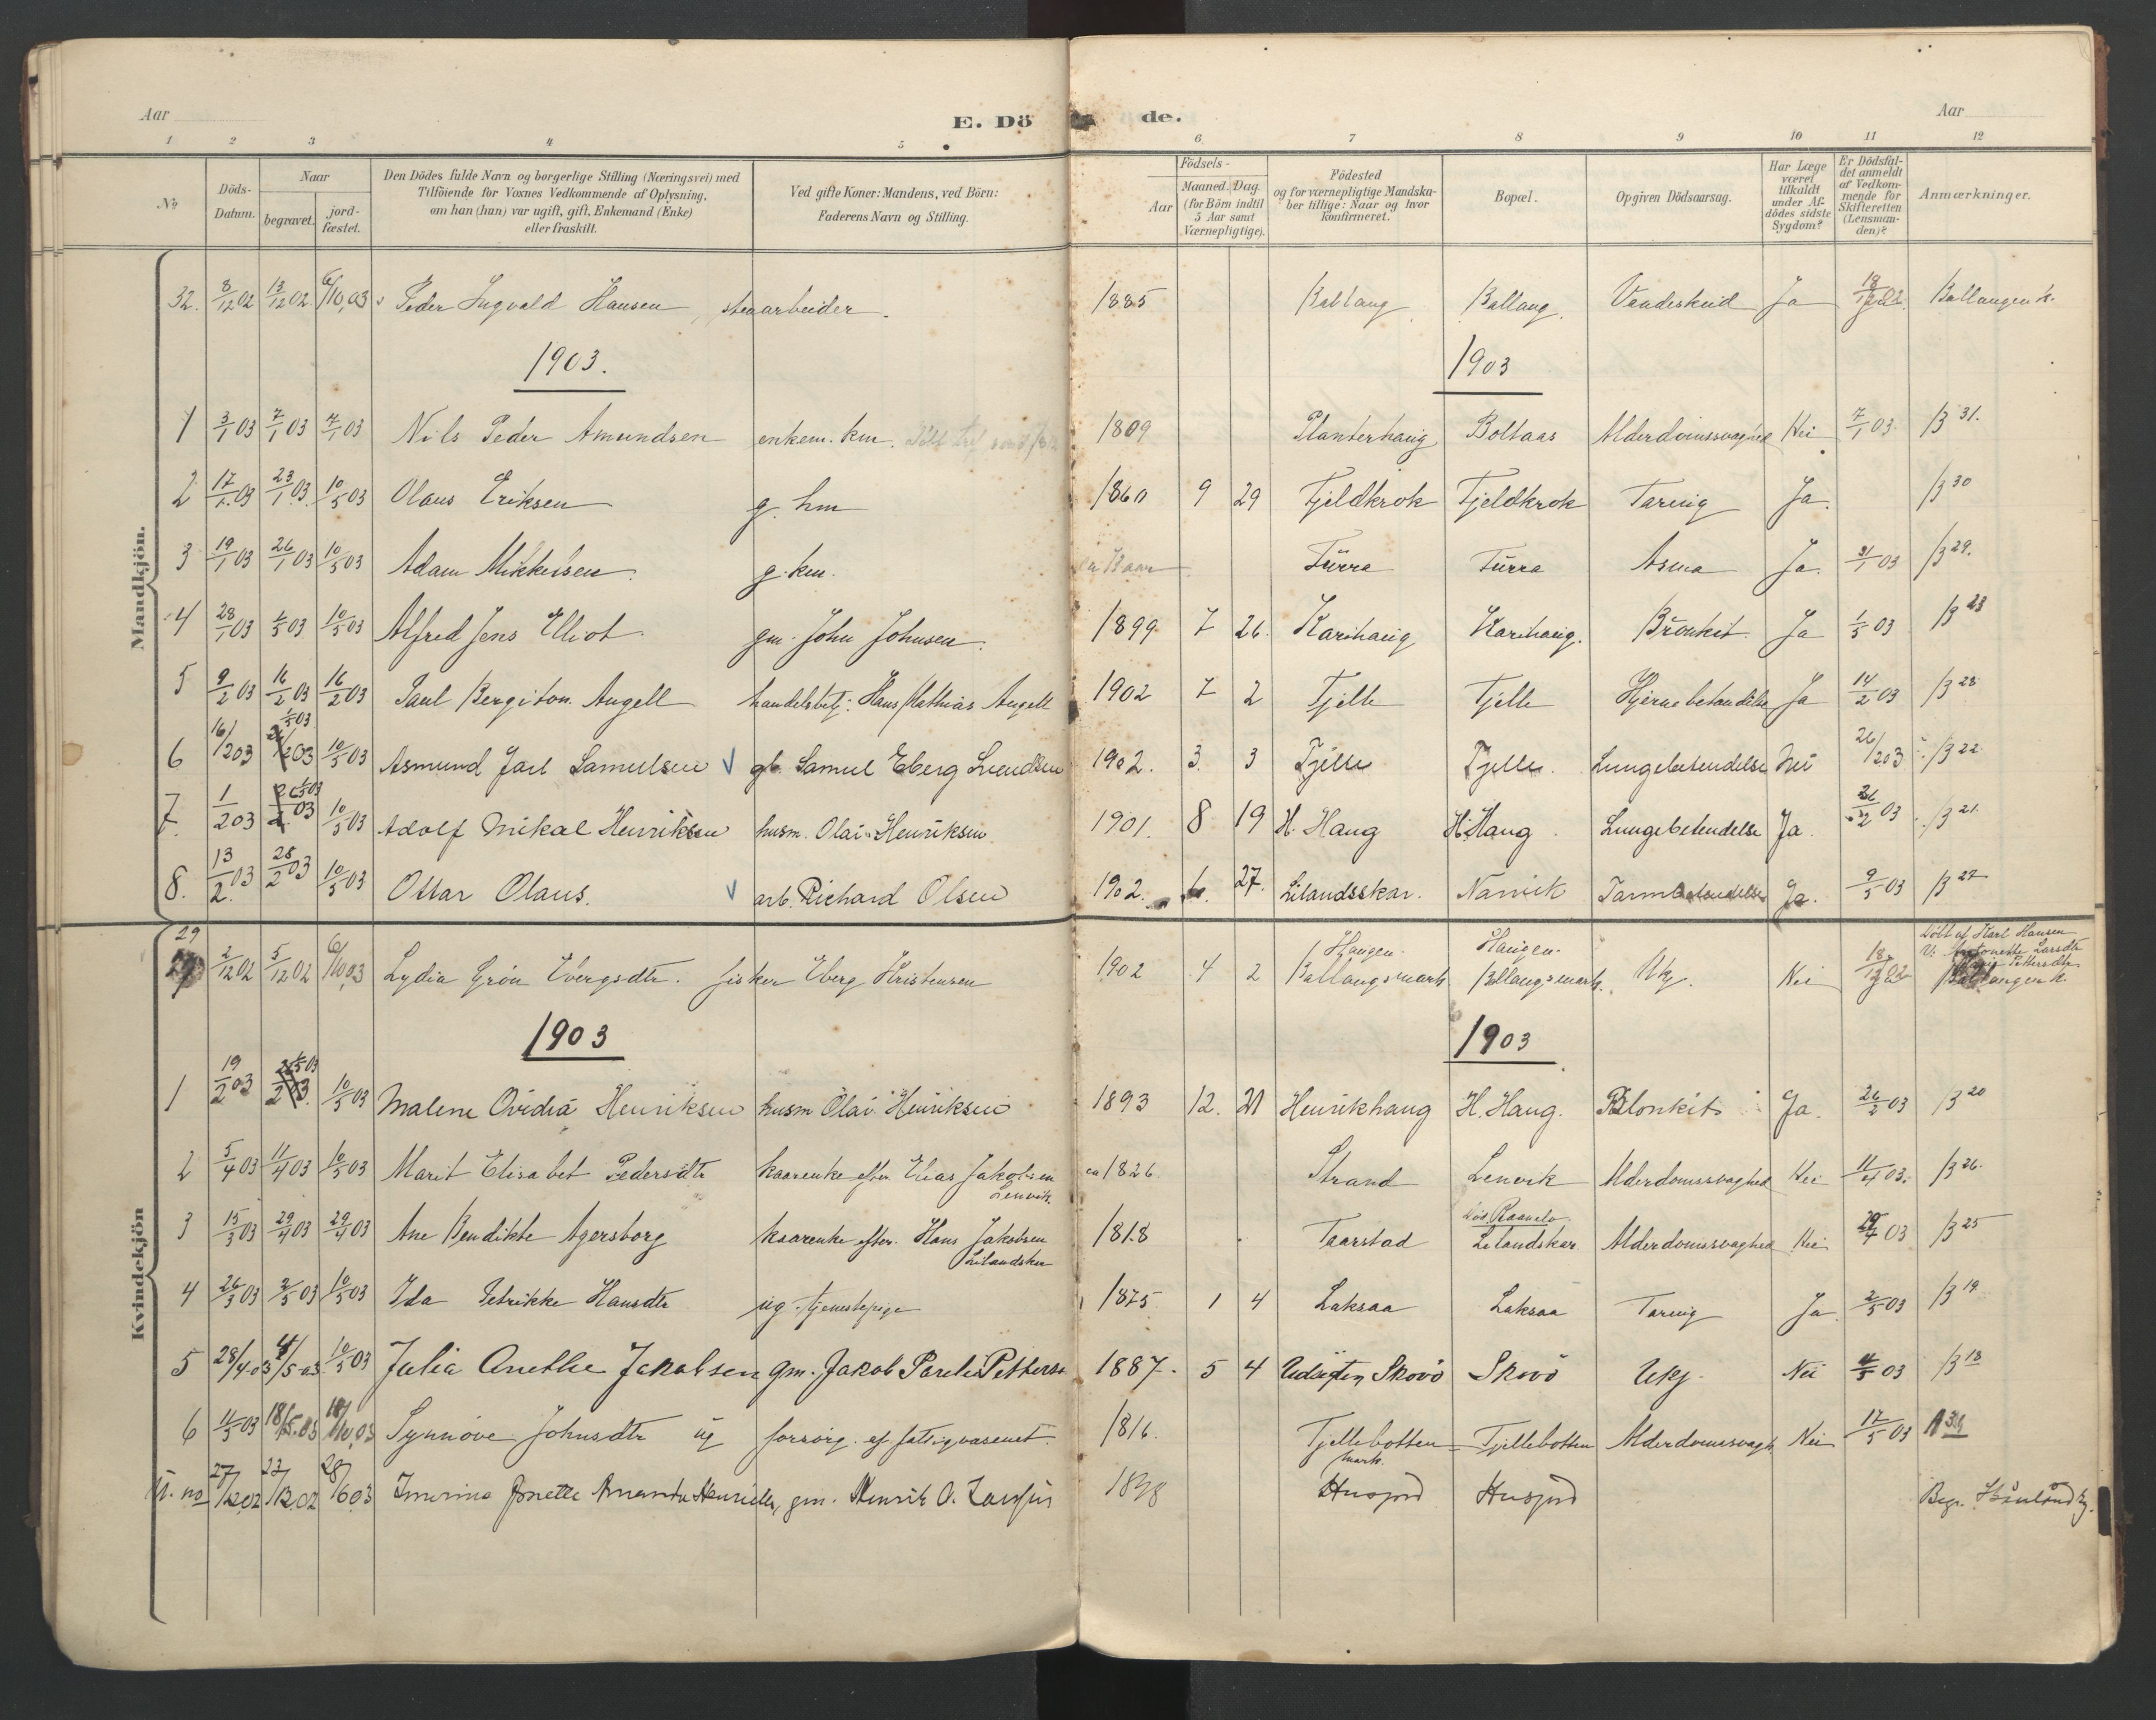 Aar
E. Dö de.
Aar
1 2 3 4 5 6 7 8 9 10 11 12
No
Döds-Datum.
Naar
begravet.
jord-fæstet.
Den Dödes fulde Navn og borgerlige Stilling (Næringsvei) med
Tilföiende for Voxnes Vedkommende af Oplysning,
om han (hun) var ugift, gift, Enkemand (Enke)
eller fraskilt.
Ved gifte Koner: Mandens, ved Börn:
Faderens Navn og Stilling.
Födsels-
Aar
Maaned. Dag.
(for Börn indtil
5 Aar samt
Værnepligtige).
Födested
og for værnepligtige Mandska-
ber tillige: Naar og hvor
konfirmeret.
Bopæl.
Opgiven Dödsaarsag.
Har Læge
været
tilkaldt
under Af-
dödes sidste
Sygdom?
Er Dödsfal-
det anmeldt
af Vedkom-
mende for
Skifteretten
(Lensman-
den)?
Anmærkninger.
Mandkjön.
32. 8/12 02 13/12 02 6/10,03 Peder Ingvald Hansen, stenarbeider. 1885 Ballang Ballang Vandeskeid Ja 18/12 02 Ballangen k.
1903. 1903
1 3/1 03 7/1 03 7/1 03 Nils Peder Amundsen enkem. km. 1809 Planterhaug Boltaas Alderdomssvaghed Nei 7/1 03. B 31.
2 17/1 03 23/1 03 10/5 03 Olaus Eriksen g. hm 1860 9 29 Fjeldkrok Fjeldkrok Taruig Ja. B 30
3 19/1 03 26/1 03 10/5 03 Adam Mikkelsen g. km. Turra Turra Asma Ja. 31/1 03 B 29.
4 28/1 03 1/5 03 10/5 03 Alfred Jens Elliot gm. John Johnsen. 1899 7 26. Karihaug Karihaug. Bronkit Ja 1/5 03 B 23
5 9/2 03 16/2 03 16/2 03 Paul Bergiton Angell handelsbetj: Hans Mathias Angell 1902 7 2 Tjelle Tjelle Hjernebetændelse Ja 14/2 03 B 28
6 16/2 03 1/5 03 10/5 03 Asmund Jarl Samuelsen gb. Samuel Eberg Svendsen 1902. 3. 3 Tjelle Tjelle. Lungebetendelse Nei 26/2 03 B 22
7. 1/2 03 1/5 03 10/5 03 Adolf Mikal Henriksen husm. Olai Henriksen 1901. 8 19 H. Haug H. Haug. Lungebetendelse Ja. 26/2 03 B 21
8. 13/2 03 28/2 03 10/5 03 Ottar Olaus. arb. Richard Olsen 1902. 6. 27. Lilandsskar. Narvik Tarmbetændelse Ja. 9/5 03 B 27
Kvindekjön
29 2/12 02 5/12 02 6/10,03 Lydia Grön Ebergsdtr. fisker Eberg Kristensen 1902 4 2 Haugen. Ballangsmark Haugen. Ballangsmark. Ukj. Nei 18/12 02 Döbt af Karl Hansen
V: Antonette Larsdtr
Pettersdtr
Ballangen k.
1903 1903
1 19/2 03 1/5 03 10/5 03 Malene Ovidia Henriksen husm Olai Henriksen 1893 12. 21 Henrikhaug H. Haug. Blonkit Ja. 26/2 03 B 20
2 5/4 03 11/4 03 10/5 03 Marit Elisabet Pedersdtr kaarenke efter Elias Jakobsen Lenvik ca 1826 Strand Lenvik Alderdomssvaghed Nei 11/4 03. B 26.
3 15/3 03 29/4 03 29/4 03 Ane Bendikte Agersborg kaarenke efter. Hans Jakobsen Lilandskar 1818 Taarstad Lilandskar Alderdomssvaghed Nei 29/4 03 B 25
4 26/3 03 2/5 03 10/5 03 Ida Petrikke Hansdtr ug. tjenestepige 1875 1 4 Laksaa Laksaa Taruig Ja 2/5 03 B 19
5 28/4.03 4/5.03 10/5 03 Julia Anethe Jakobsen gm. Jakob Pareli Petters. 1887. 5 4 Udsigten Skovö Skovö Ukj. Nei 4/5 03 B 18
6 11/5 03 18/5.03 18/10,03 Synnöve Johnsdtr ug forsörg. af fattigvæsenet. 1816. Tjellebotten mark. Tjellebotten Alderdomssvagh Nei 17/5 03
U. no 27/12 02 23/12 02 28/6 03 Imerine Jonette Amanda Henrikke, gm. Henrik O. 1838 Husjord Husjord Begr.